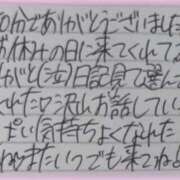 0分でありがとうございました
お休みの日に来てくれて
がと(泣)日記見て選ん
れた口 沢山お話してい
ぱい気持ちよくなれた
またいつでも来てね